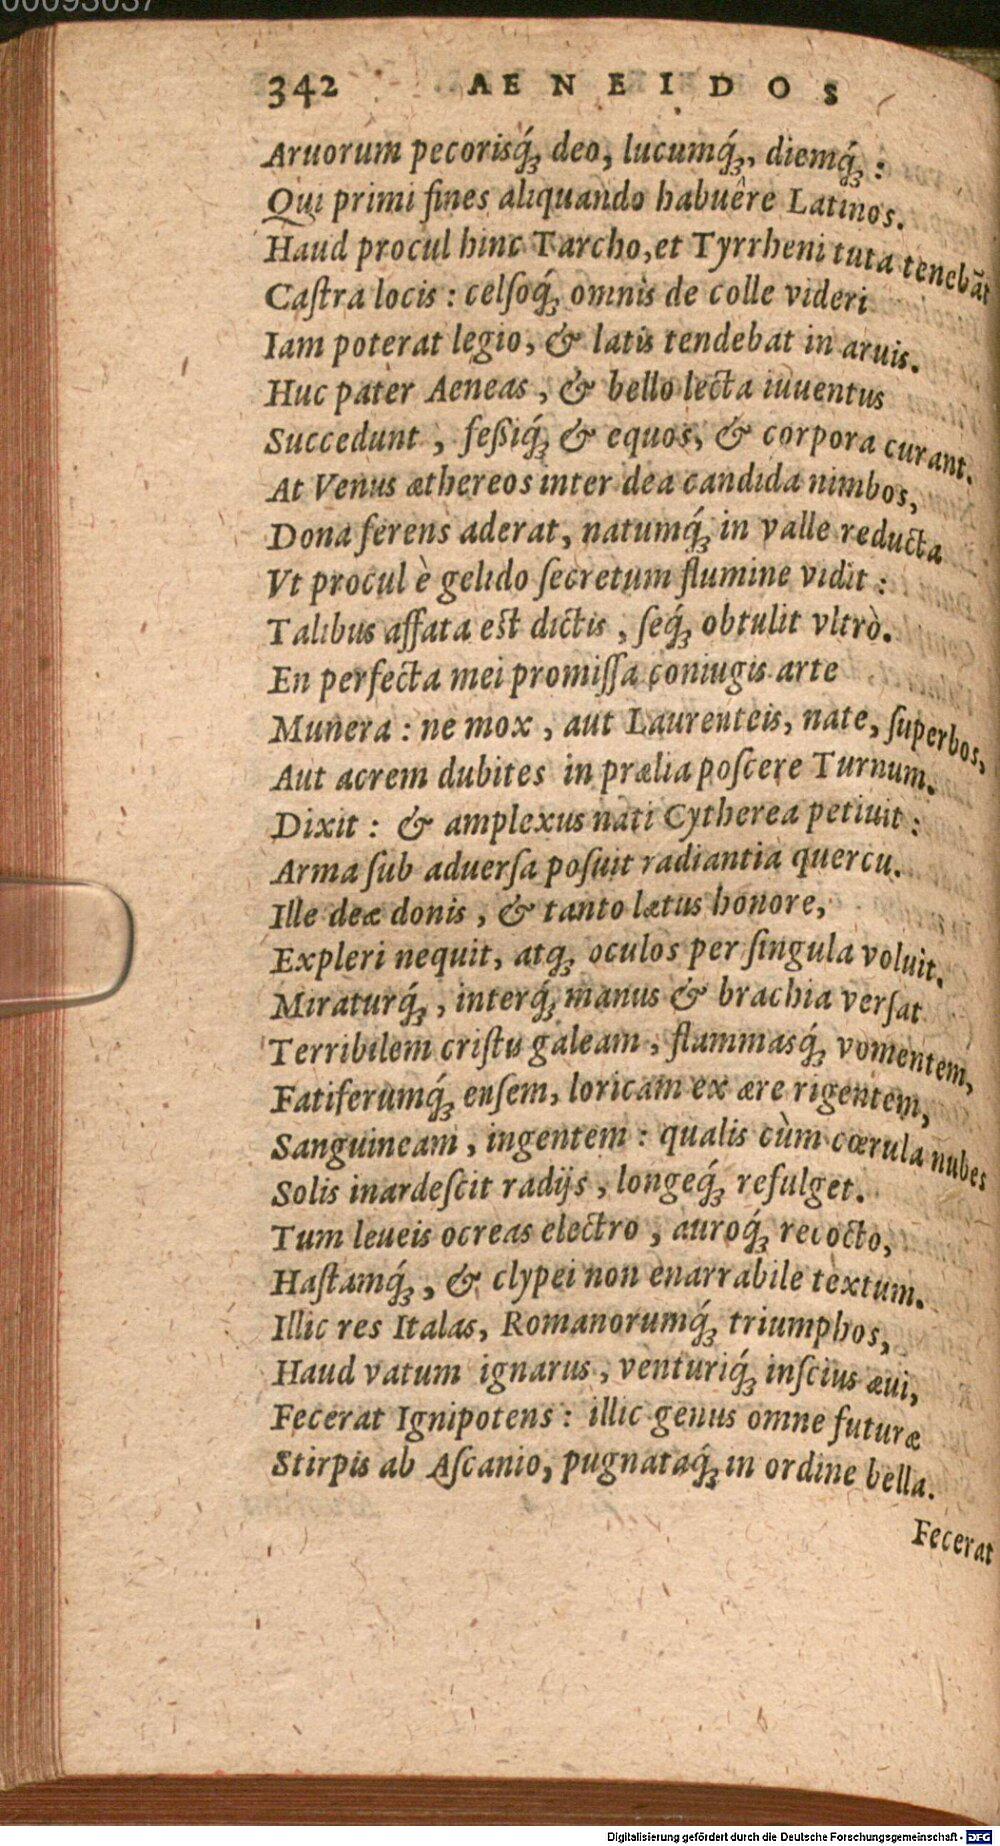 00093037
342 AENEIDOS
Aruorum pecorisq́;, deo, lucumq́;, diemq́; :
Qui primi fines aliquando habuêre Latinos.
Haud procul hinc Tarcho, et Tyrrheni tuta tenebāt
Caſtra locis : celſoq́; omnis de colle videri
Iam poterat legio, & latis tendebat in aruis.
Huc pater Aeneas, & bello lecta iuuentus
Succedunt, feßiq́; & equos, & corpora curant.
At Venus æthereos inter dea candida nimbos,
Dona ferens aderat, natumq́; in valle reducta
Vt procul è gelido ſecretum flumine vidit :
Talibus affata eſt dictis, ſeq́; obtulit vltrò.
En perfecta mei promiſſa coniugis arte
Munera : ne mox, aut Laurenteis, nate, ſuperbos,
Aut acrem dubites in prælia poſcere Turnum.
Dixit : & amplexus nati Cytherea petiuit :
Arma ſub aduerſa poſuit radiantia quercu.
Ille deæ donis, & tanto lætus honore,
Expleri nequit, atq; oculos per ſingula voluit.
Miraturq́;, interq́; manus & brachia verſat
Terribilem criſtis galeam, flammasq́; vomentem,
Fatiferumq́; enſem, loricam ex ære rigentem,
Sanguineam, ingentem : qualis cùm cœrula nubes
Solis inardeſcit radijs, longeq́; refulget.
Tum leueis ocreas electro, auroq́; recocto,
Haſtamq́;, & clypei non enarrabile textum.
Illic res Italas, Romanorumq́; triumphos,
Haud vatum ignarus, venturiq́; inſcius æui,
Fecerat Ignipotens : illic genus omne futuræ
Stirpis ab Aſcanio, pugnataq́; in ordine bella.
Fecerat
Digitalisierung gefördert durch die Deutsche Forschungsgemeinschaft - DFG